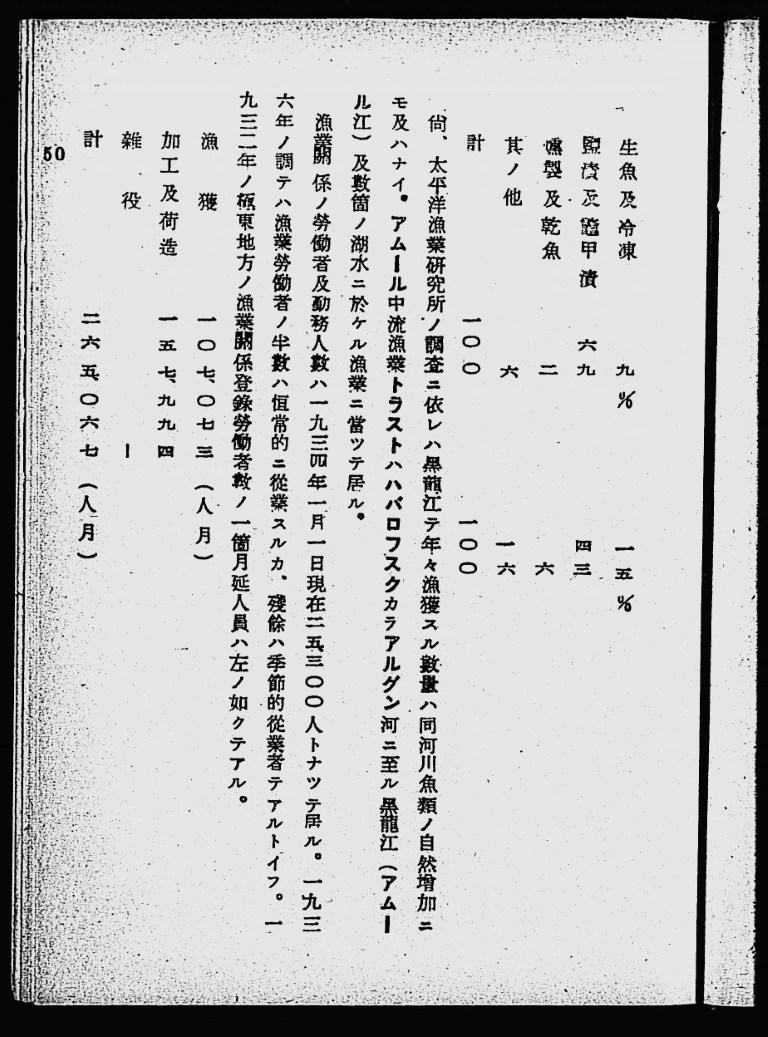 生魚及冷凍 九% 一五%
鹽漬及鑵甲漬 六九 四三
燻製及乾魚 二 六
其ノ他 六 一六
計 一〇〇 一〇〇
尙、太平洋漁業硏究所ノ調査ニ依レハ黑龍江テ年々漁獲スル數量ハ同河川魚類ノ自然增加ニ
モ及ハナイ。アムール中流漁業トラストハハバロフスクカラアルグン河ニ至ル黑龍江(アムー
ル江)及數箇ノ湖水ニ於ケル漁業ニ當ツテ居ル。
漁業關係ノ勞働者及勤務人數ハ一九三四年一月一日現在二五、三〇〇人トナツテ居ル。一九三
六年ノ調テハ漁業勞働者ノ半數ハ恒常的ニ從業スルカ、殘餘ハ季節的從業者テアルトイフ。一
九三二年ノ極東地方ノ漁業關係登錄勞働者數ノ一箇月延人員ハ左ノ如クテアル。
漁獲 一〇七、〇七三(人月)
加工及荷造 一五七、九九四
雜役 ー
計 二六五、〇六七(人月)
50